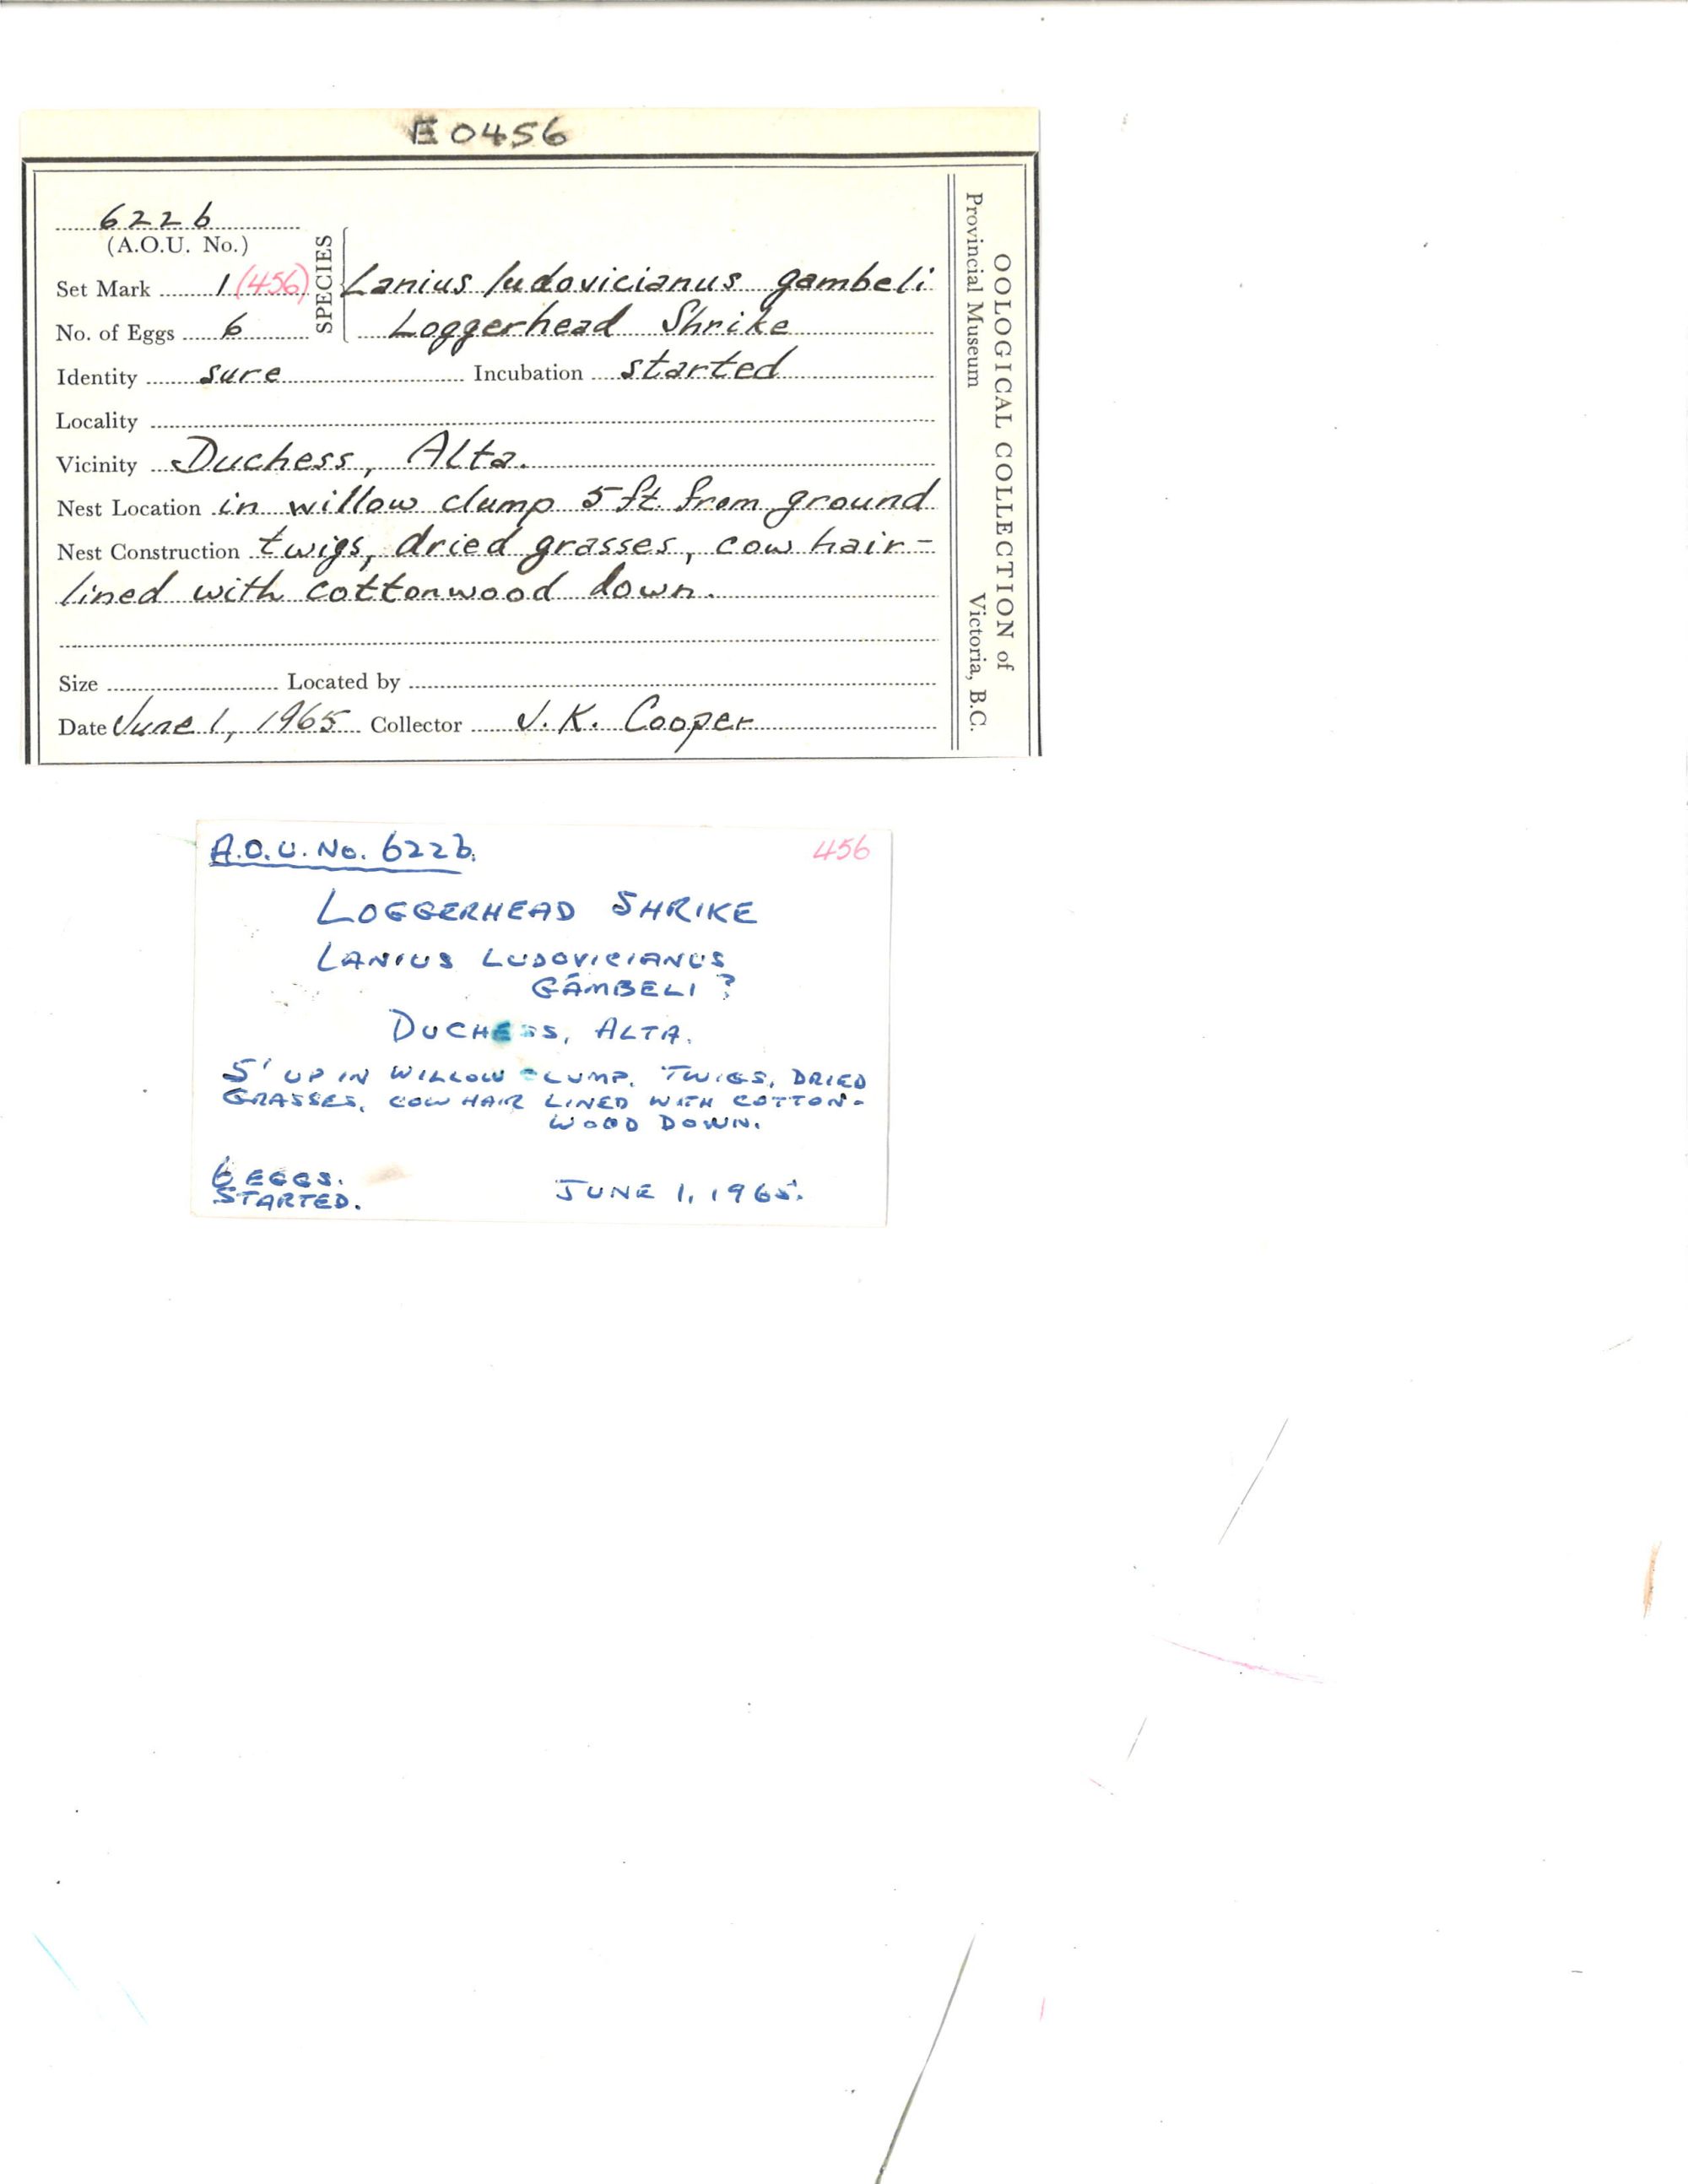 E0456
622b
(A.O.U. No.)
Set Mark 1 (456)
No. of Eggs 6
SPECIES
Lanius ludovicianus gambeli
Loggerhead Shrike
Identity sure Incubation started
Locality
Vicinity Duchess, Alta.
Nest Location in willow clump 5 ft. from ground
Nest Construction twigs, dried grasses, cow hair-
lined with cottonwood down.
Size Located by
Date June 1, 1965 Collector J. K. Cooper
OOLOGICAL COLLECTION of
Provincial Museum Victoria, B.C.
A.O.U. No. 622b. 456
LOGGERHEAD SHRIKE
LANIUS LUDOVICIANUS
GAMBELI ?
DUCHESS, ALTA.
5' UP IN WILLOW CLUMP. TWIGS, DRIED
GRASSES, COW HAIR LINED WITH COTTON-
WOOD DOWN.
6 EGGS.
STARTED.
JUNE 1, 1965.